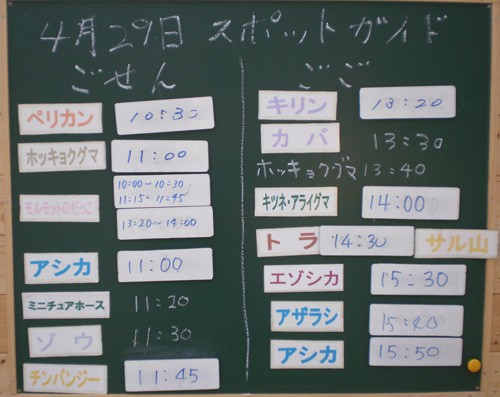 4月29日 スポットガイド
ごぜん
ペリカン 10:30
ホッキョクグマ 11:00
モルモットのだっこ 10:00~10:30
11:15~11:45
13:20~14:00
アシカ 11:00
ミニチュアホース 11:20
ゾウ 11:30
チンパンジー 11:45
ごご
キリン 13:20
カバ 13:30
ホッキョクグマ 13:40
キツネ・アライグマ 14:00
トラ 14:30 サル山
エゾシカ 15:30
アザラシ 15:40
アシカ 15:50